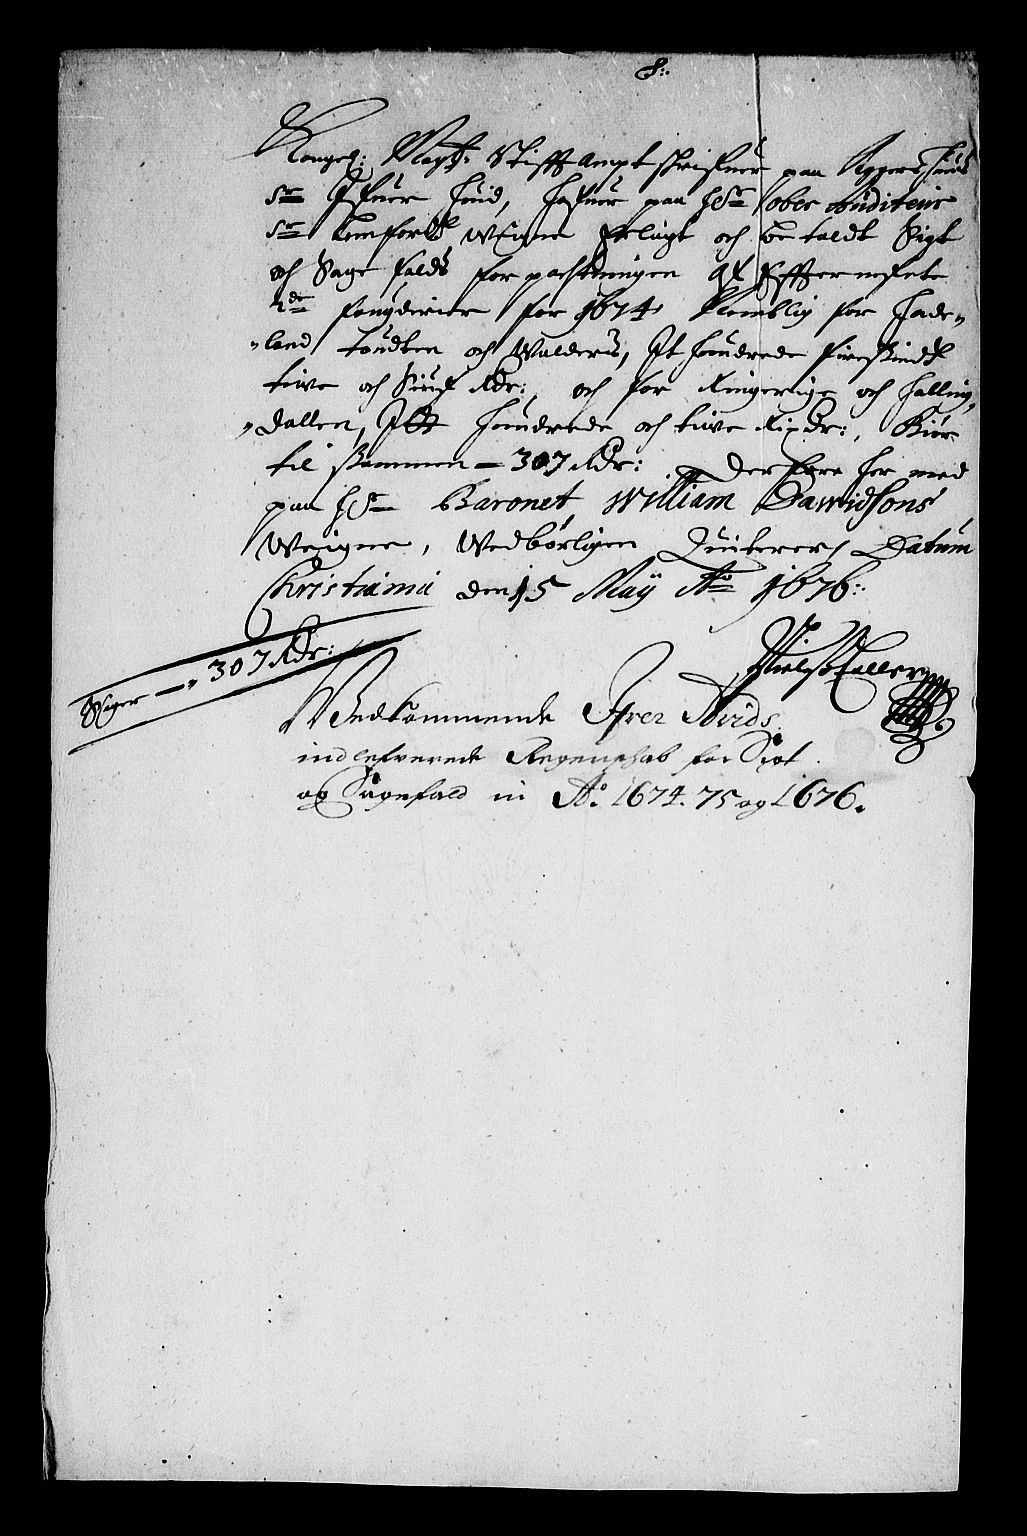 8:
Kongel: Mayts: Stifft Ampt skrifuer paa Aggershuus
Sr Ifuer Huid, hafuer paa hSr ober Auditeur
Sr Temforts weigne Erlagt och betaldt Sigt
och Sage falds forpachtningen af Effternefnte
2de fougderier for 1674 Nemblig for Hade„
„land Toudten och Walders, Et hundrede fiiresindts
tiuve och Siuf Rdr:, och for Ringerige och Halling„
„dallen, Itt hundrede och tiuve Rixdr:, Giør
tilsammen — 307 Rdr: Derfore her med
paa hSr Baronet, William Dawidsons
Weigne, Wedbørligen Quiterers Datum
Christiania den 15 Maÿ Ao 1676:
Niels Müller
Siger — „ 307 Rdr:
Vedkommende Ifver Hvids
indlefverede Regenskab for Sigt
og Sagefald in Ao. 1674. 75 og 1676.